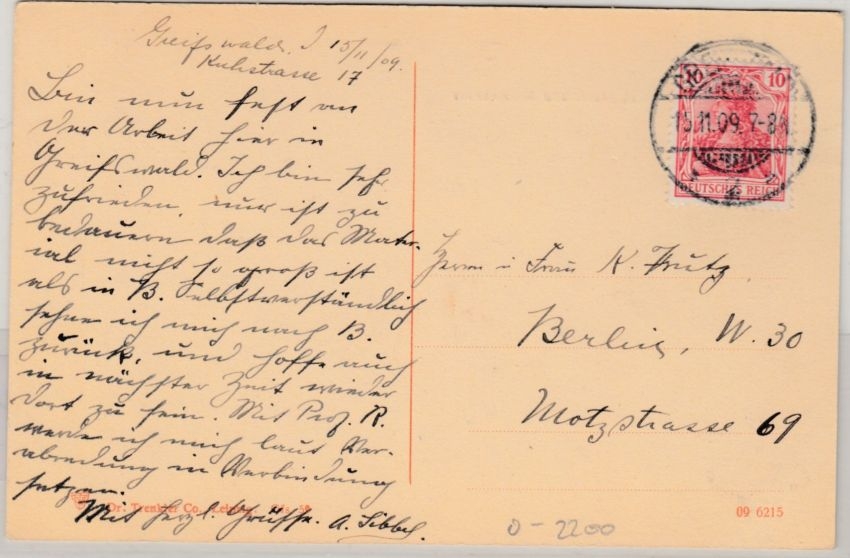 Greifswald. d 15/11/09.
Kuhstrasse 17
Bin nun fest an
der Arbeit hier in
Greifswald. Ich bin sehr
zufrieden, nur ist zu
bedauern daß das Mater-
ial nicht so groß ist
als in B. Selbstverständlich
sehne ich mich nach B.
zurück, und hoffe auch
in nächster Zeit wieder
dort zu sein. Mit Prof. R.
werde ich mich laut Ver-
abredung in Verbindung
setzen.
Mit herzl. Grüssen. A. Sibbel.
Dr. Trenkler Co., Leipzig.
09 6215
10 10
15.11.09. 7-8
DEUTSCHES REICH
Herrn u Frau K. Prutz
Berlin, W. 30
Motzstrasse 69
0-2200